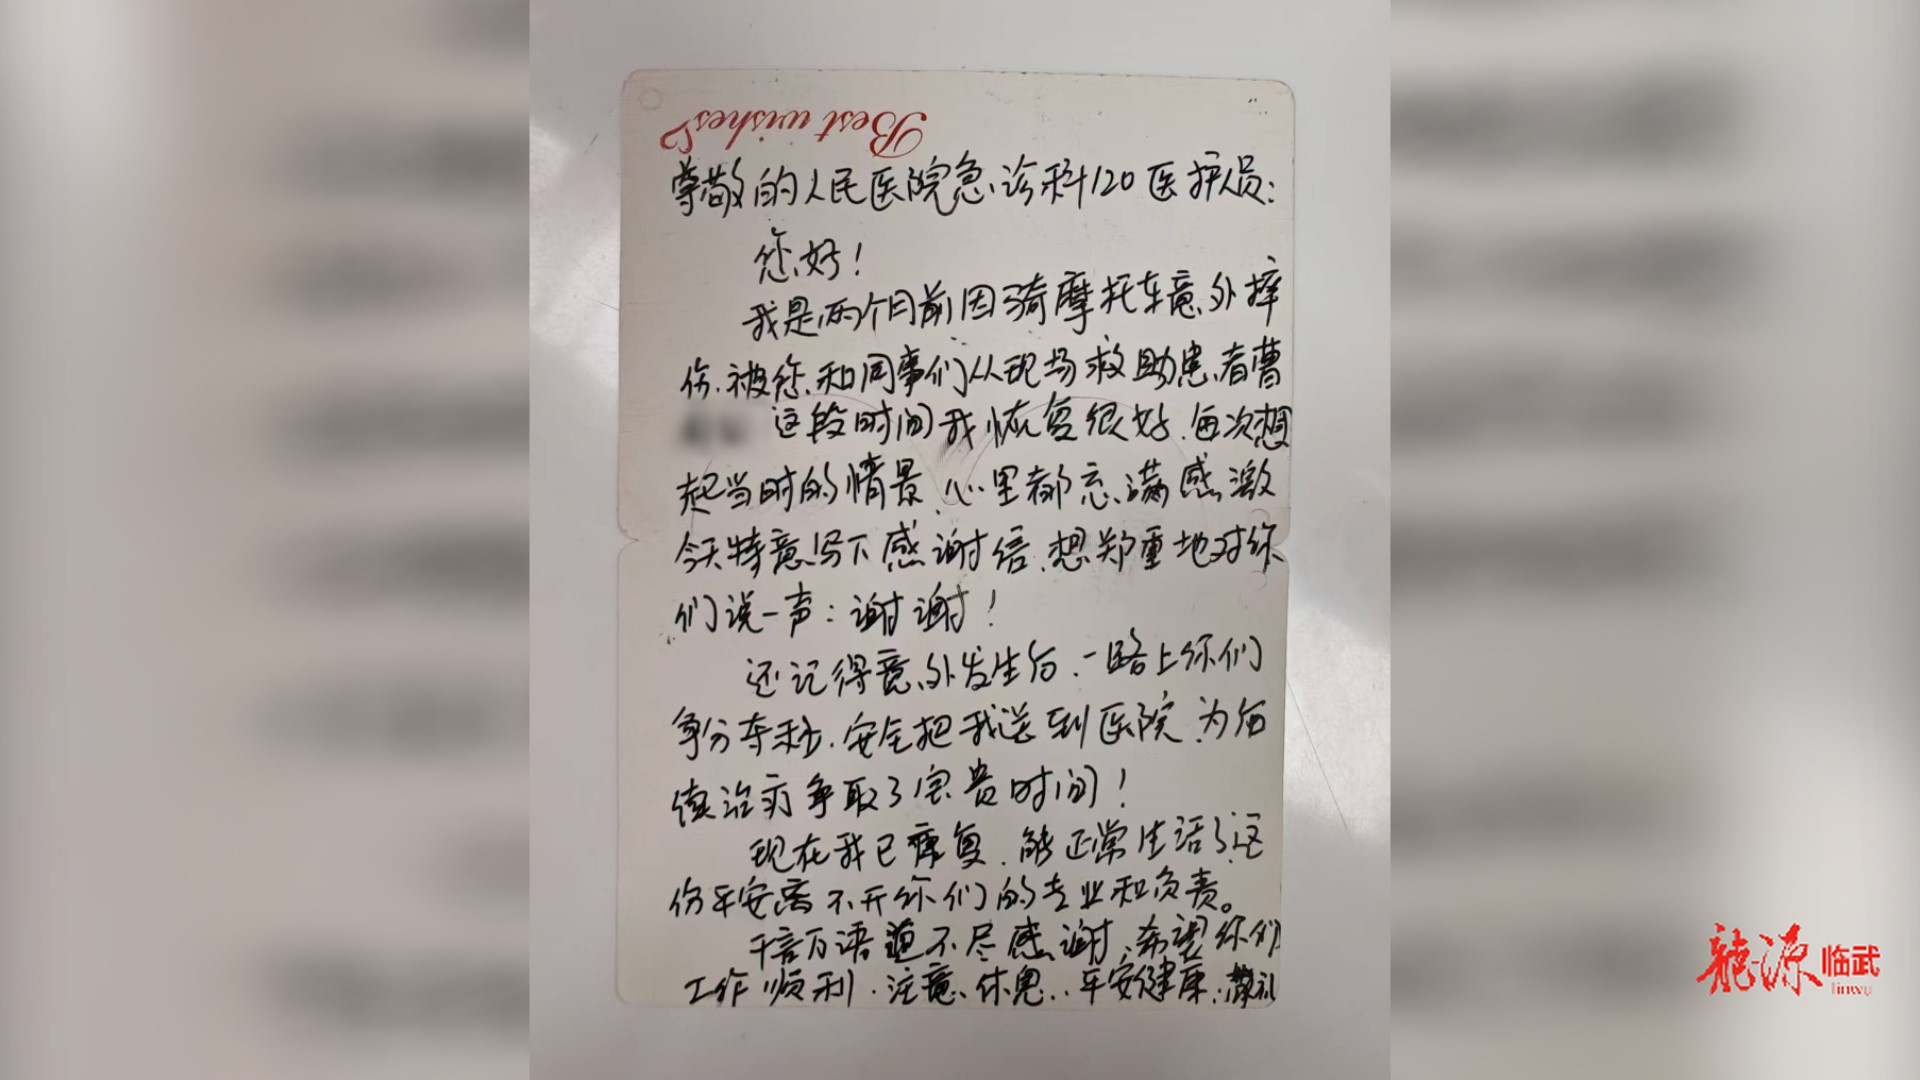 Best wishes
尊敬的人民医院急诊科120医护员：
您好！
我是两个月前因骑摩托车意外摔
伤.被您和同事们从现场救助患者曹
这段时间我恢复很好.每次想
起当时的情景.心里都充满感激
今天特意写下感谢信.想郑重地对你
们说一声：谢谢！
还记得意外发生后.一路上你们
争分夺秒.安全把我送到医院.为后
续治疗争取了宝贵时间！
现在我已康复.能正常生活了这
份平安离不开你们的专业和负责。
千言万语道不尽感谢,希望你们
工作顺利.注意休息..平安健康.敬礼
龍源临武
linwu